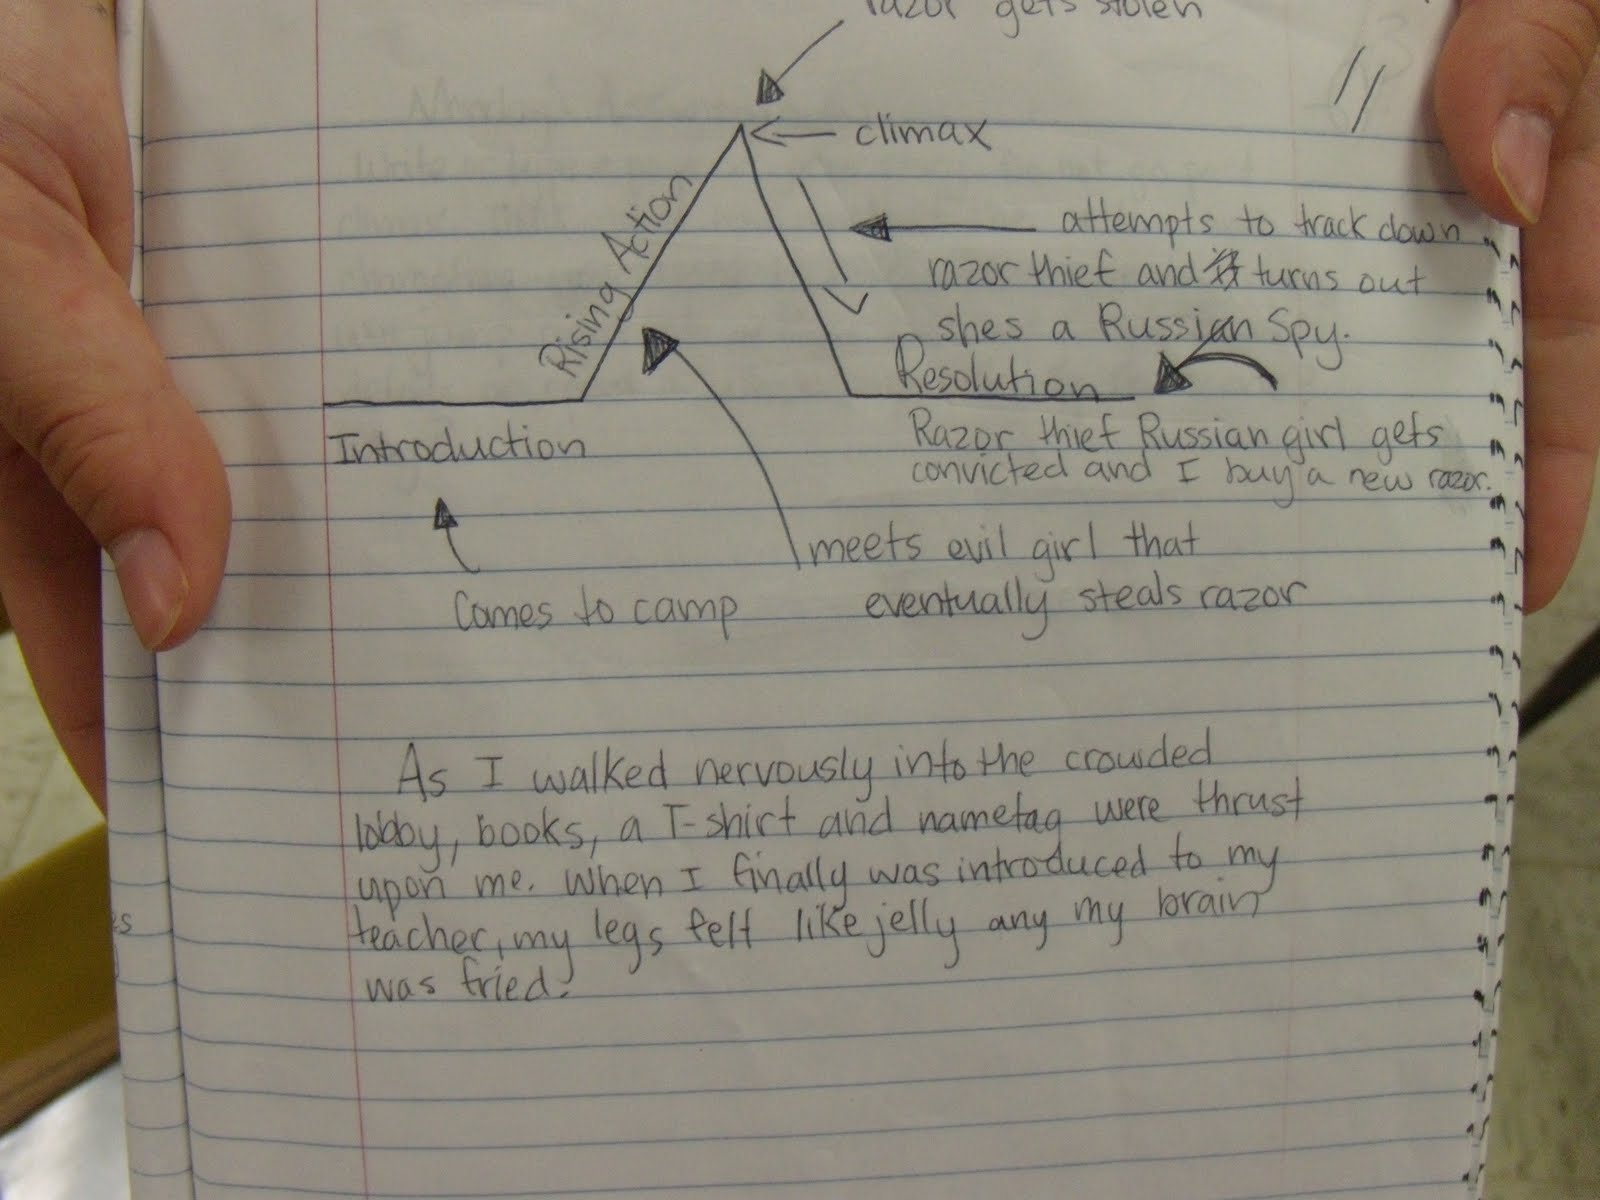 razor gets stolen
11
climax
Rising Action
attempts to track down
razor thief and turns out
shes a Russian Spy.
Resolution
Introduction
Razor thief Russian girl gets
convicted and I buy a new razor.
meets evil girl that
eventually steals razor
Comes to camp
As I walked nervously into the crowded
lobby, books, a T-shirt and nametag were thrust
upon me. When I finally was introduced to my
teacher, my legs felt like jelly any my brain
was fried.